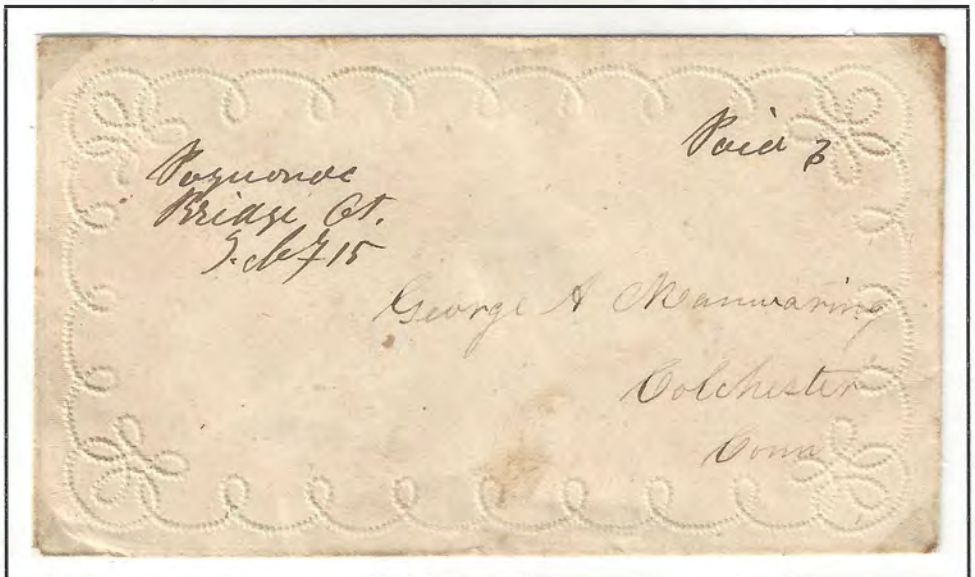 Paid 3
Poquonoc
Bridge Ct.
Feby 15
George A Manwaring
Colchester
Conn